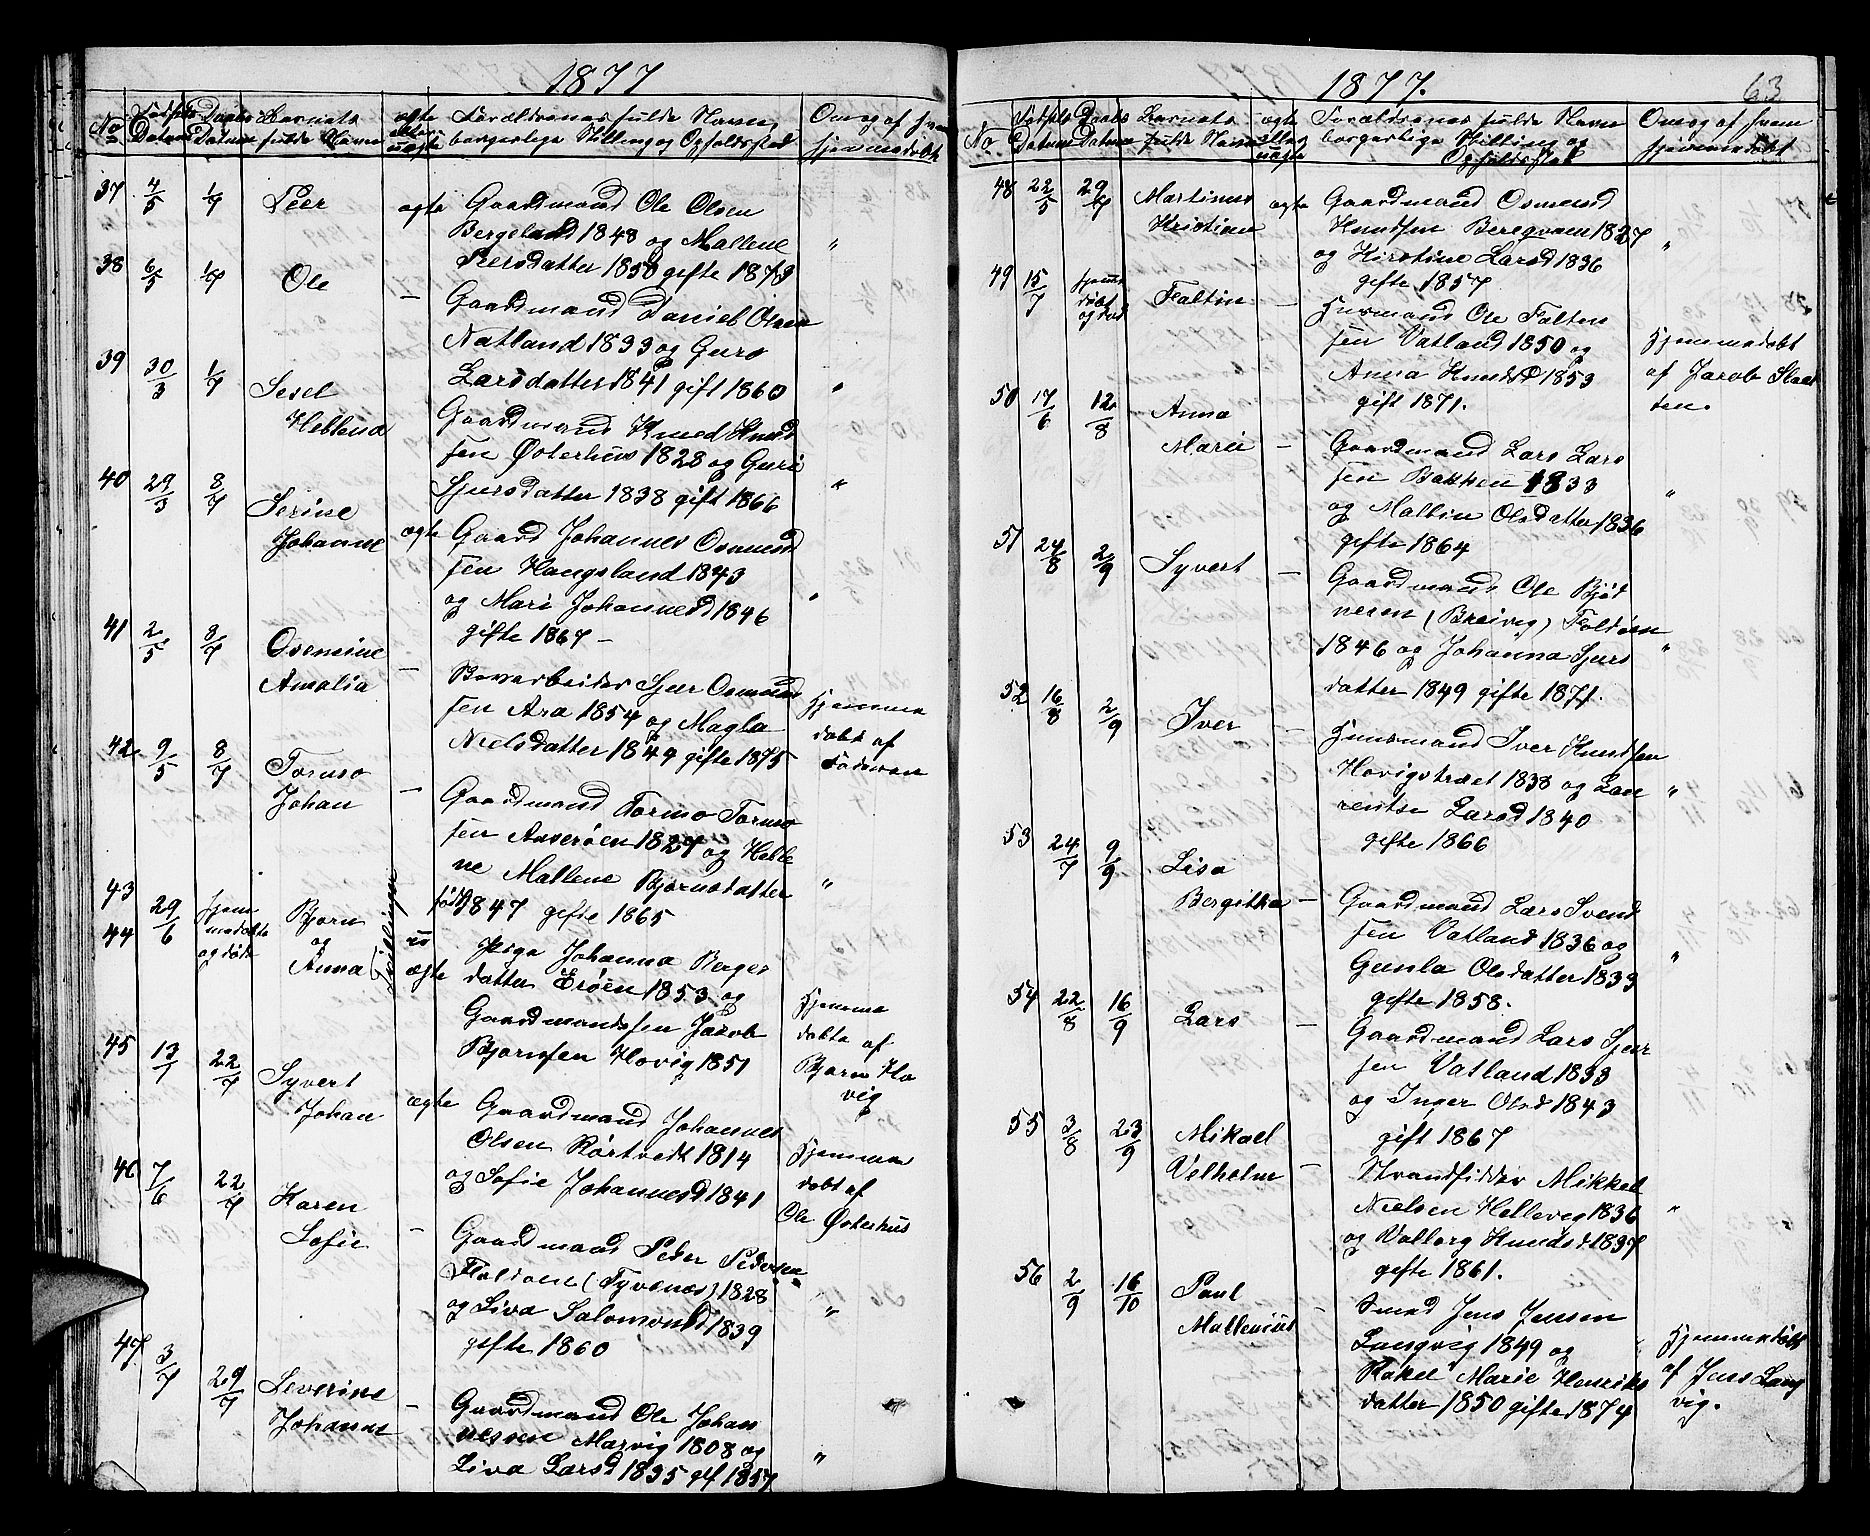 1877
No
Datum Datum fulde Navn ægte borgerlige Stilling og Opholdsted hjemmedøbt
37 4/5 1/7 Peer ægte Gaardmand Ole Olsen
Bergeland 1848 og Mallene "
Peersdatter 1850 gifte 1873
38 6/5 1/7 Ole — Gaardmand Daniel Olsen
Natland 1833 og Guro
Larsdatter 1841 gift 1860 "
39 30/3 1/7 Sesel
Hellena Gaardmand Knud Knud
sen Østerhus 1828 og Guri
Sjursdatter 1838 gift 1866 "
40 29/3 8/7 Serine
Johanne ægte Gaard Johannes Osmund
sen Haugsland 1843
og Mari Johannesd 1846 "
gifte 1867 —
41 2/5 8/7 Osmine
Amalia — Sjur Osmund
sen Ara 1854 og Magla
Nielsdatter 1844 gifte 1875
hjemme
døbt af
42 9/5 8/7 Tormo
Johan — Gaardmand Tormo Tormo
sen Asserøen 1827 og Helle
ne Mallene Bjørnsdatter "
født 1847 gifte 1865
43
44 29/6 hjem
medøbte
og døde
Bjørn
og
Anna
Tvillinger
u
ægte
Pige Johanna Berges
datter Erøen 1853 og
Gaardmandssøn Jacob
Bjørnsen Hovig 1851
hjemme
døbte af
Bjørn Ho
vig
45 13/7 22/7 Syvert
Johan ægte Gaardmand Johannes
Olsen Rørtvedt 1814
og Sofie Johannesd 1841
hjemme
døbt af
Ole Østerhus
46 7/6 22/7 Karen
Sofie — Gaardmand Peder Peders
Foldøen (Tyvenæs) 1828
og Liva Salomonsd 1839 "
gifte 1860
47 3/7 29/7 Severine
Johanne — Gaardmand Ole Johan
nessen Marvig 1808 og
Liva Larsd 1835 gif 1857 "
1877. 63
No Datum Datum fulde Navn borgerlige Stilling og
Opholdsted hjemmedøbt
48 22/5 29/7 Martinus
Kristian ægte Gaardmand Osmund
Knudsen Bergquam 1827 "
og Kirstine Larsd 1836
gifte 1857
49 15/7 hjemme
døbt
og død
Faltin — Husmand Ole Falten
sen Vatland 1850 og
Anna Knudsd 1853
gift 1871.
Hjemmedøbt
af Jacob Slaat
ten.
50 17/6 12/8 Anna
Marie — Gaardmand Lars Lars
sen Bakken 1833 "
og Mallin Olsdatter 1836
gifte 1864
51 24/8 2/9 Syvert — Gaardmand Ole Bjød
neren (Breivig) Foldøen
1846 og Johanna Sjurs "
datter 1849 gifte 1871.
52 16/8 2/9 Iver — Huusmand Iver Knudsen
Hovigstræet 1838 og Lau "
rentse Larsd 1840
gifte 1866
53 24/7 9/9 Lisa
Bergitha — Gaardmand Lars Svend
sen Vatland 1836 og "
Gunla Olsdatter 1833
gifte 1858.
54 22/8 16/9 Lars — Gaardmand Lars Sjur
sen Vatland 1833
og Inger Olsd 1843
gift 1867
55 3/8 23/9 Mikael
Velhelm — Strandsidder Mikkel
Nielsen Hellevig 1836 "
og Valborg Knudsd. 1837
gifte 1861.
56 2/9 16/10 Paul
Mallenius — Smed Jens Jensen
Langvig 1849 og
Rakel Marie Henriks
datter 1850 gifte 1874
Hjemmedøbt
af Jens Lang
vig.